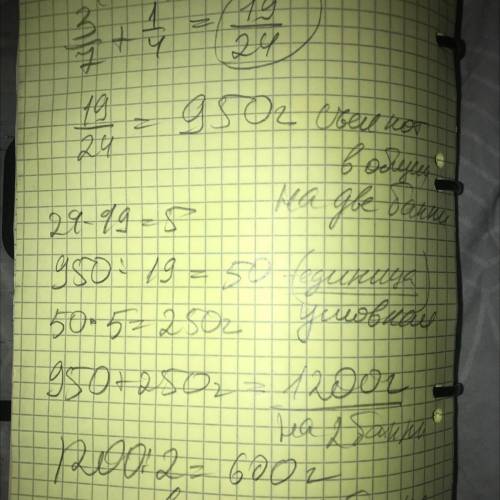 3/7 + 1/4 = 19/24
19/24 = 950г съел кот
в общем
на две банки
24-19=5
950÷19=50 (единица)
50·5=250г условная
950+250г=1200г
на 2 банки
1200÷2=600г